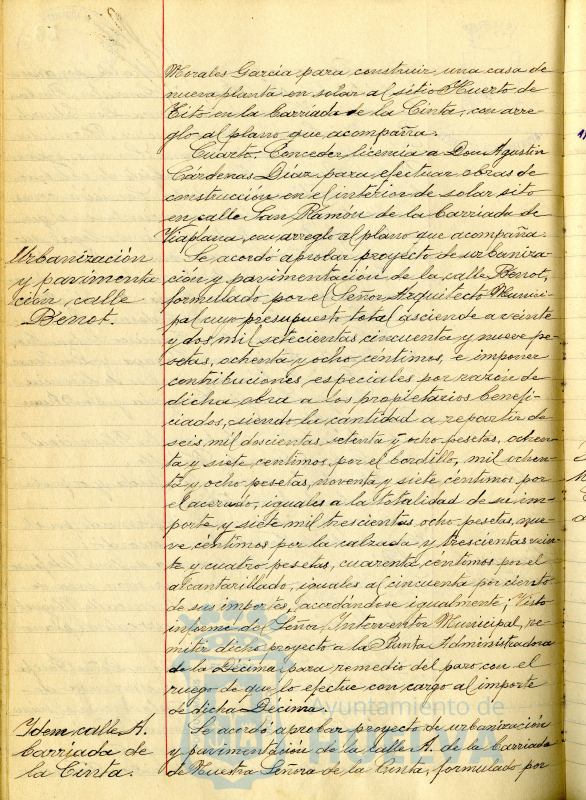 Morales García para construir una casa de
nueva planta en solar al sitio Huerto de
Tito en la barriada de la Cinta, con arre-
glo al plano que acompaña.
Cuarto. Conceder licencia a Don Agustín
Cárdenas Díaz para efectuar obras de
construcción en el interior de solar sito
en calle San Ramón de la barriada de
Viaplana, con arreglo al plano que acompaña.
Urbanización
y pavimenta
ción calle
Berrot.
Se acordó aprobar proyecto de urbaniza-
ción y pavimentación de la calle Berrot,
formulado por el Señor Arquitecto Munici-
pal cuyo presupuesto total asciende a veinte
y dos mil setecientas cincuenta y nueve pe-
setas, ochenta y ocho centimos, e imponer
contribuciones especiales por razón de
dicha obra a los propietarios benefi-
ciados, siendo la cantidad a repartir de
seis mil doscientas setenta y ocho pesetas, ochen-
ta y siete centimos por el bordillo, mil ochen-
ta y ocho pesetas, noventa y siete céntimos por
el acerado, iguales a la totalidad de su im-
porte y siete mil trescientas ocho pesetas, nue-
ve céntimos por la calzada y trescientas vein-
te y cuatro pesetas, cuarenta céntimos por el
alcantarillado, iguales al cincuenta por ciento
de sus importes, acordándose igualmente, visto
informe del Señor Interventor Municipal, re-
mitir dicho proyecto a la Junta Administradora
de la Décima para remedio del paro con el
ruego de que lo efectue con cargo al importe
de dicha Décima.
Idem calle A.
barriada de
la Cinta.
Se acordó aprobar proyecto de urbanización
y pavimentación de la calle A. de la barriada
de Nuestra Señora de la Cinta, formulado por
Ayuntamiento de
HUELVA